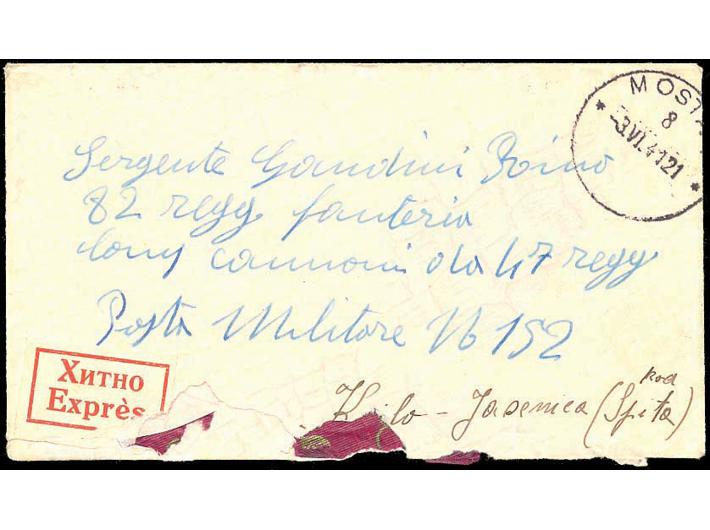 MOSTA
8
-3.VI.41.21
Sergente Gandini Rino
82 regg fanteria
Comp cannoni da 47 regg
Posta Militare N 152
Хитно
Exprès
Kilo - Jasenica (kod Spita)